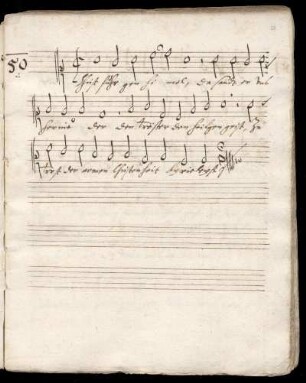 50
Christ fuhr gen hi mel, da sandt er uns
der den tröster den heiligen geist, zu
trost der armen Christenheit kyrieleyß